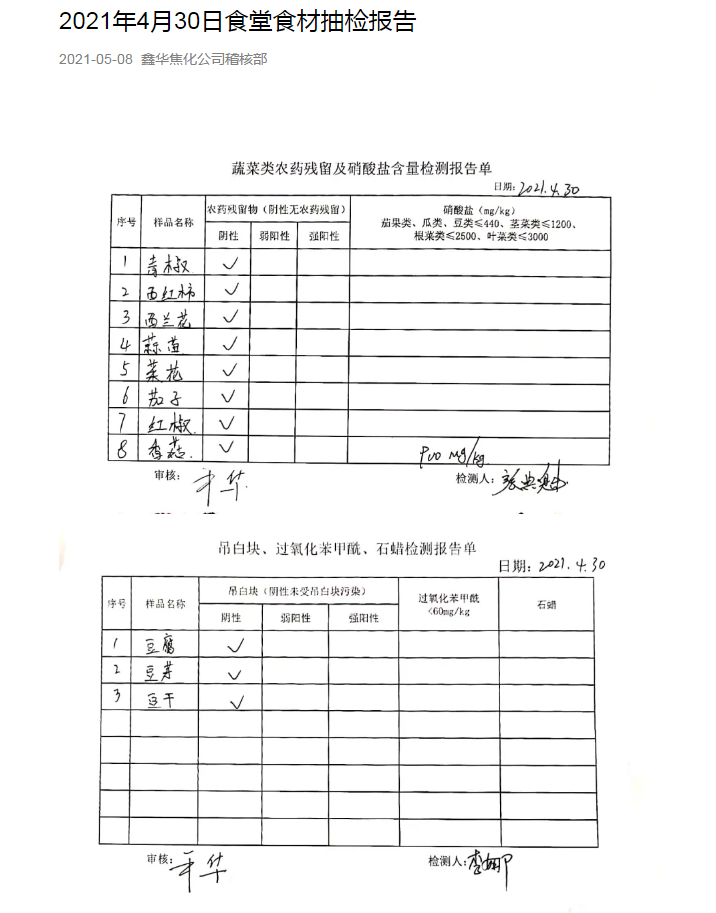 2021年4月30日食堂食材抽检报告
2021-05-08 鑫华焦化公司稽核部
蔬菜类农药残留及硝酸盐含量检测报告单
日期：2021.4.30
序号 样品名称 农药残留物（阴性无农药残留） 硝酸盐（mg/kg）
茄果类、瓜类、豆类≤440、茎菜类≤1200、
根菜类≤2500、叶菜类≤3000
阴性 弱阳性 强阳性
1 青椒 ✓
2 西红柿 ✓
3 西兰花 ✓
4 蒜苗 ✓
5 菜花 ✓
6 茄子 ✓
7 红椒 ✓
8 香菇 ✓ mg/kg
审核： 华 检测人：
吊白块、过氧化苯甲酰、石蜡检测报告单
日期：2021.4.30
序号 样品名称 吊白块（阴性未受吊白块污染） 过氧化苯甲酰
<60mg/kg 石蜡
阴性 弱阳性 强阳性
1 豆腐 ✓
2 豆芽 ✓
3 豆干 ✓
审核： 华 检测人：李娜